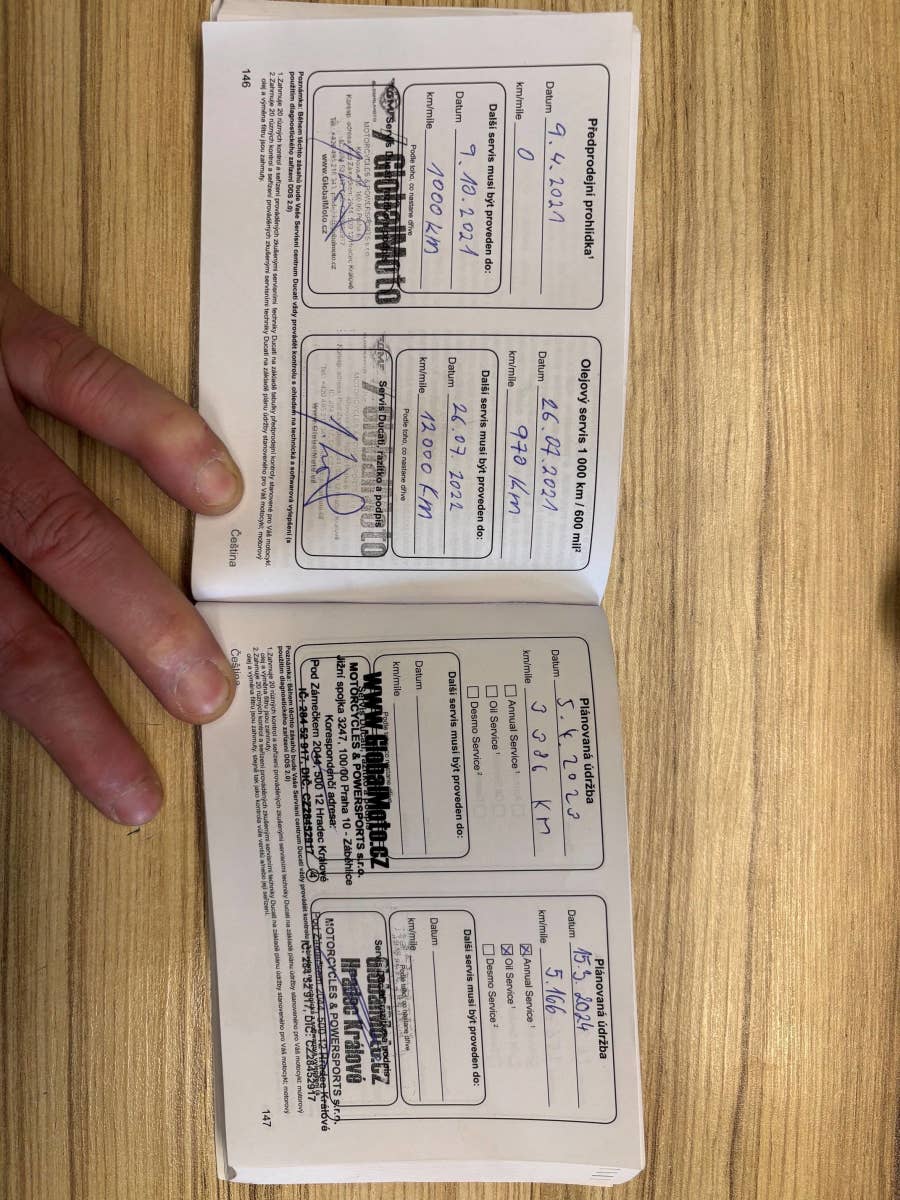 Předprodejní prohlídka¹
Datum 9. 4. 2021
km/mile 0
Další servis musí být proveden do:
Datum 9. 10. 2021
km/mile 1000 km
Podle toho, co nastane dříve
GlobalMoto
MOTORCYCLES & POWERSPORTS s.r.o.
www.GlobalMoto.cz
Poznámka: Během těchto zásahů bude Vaše Servisní centrum Ducati vždy provádět kontrolu s ohledem na technická a softwarová vylepšení (s
použitím diagnostického zařízení DDS 2.0)
1.Zahrnuje 20 různých kontrol a seřízení prováděných zkušenými servisními techniky Ducati na základě tabulky předprodejní kontroly stanovené pro Váš motocykl.
2.Zahrnuje 20 různých kontrol a seřízení prováděných zkušenými servisními techniky Ducati na základě plánu údržby stanoveného pro Váš motocykl; motorový
olej a výměna filtru jsou zahrnuty.
146
Olejový servis 1 000 km / 600 mil²
Datum 26. 07. 2021
km/mile 970 km
Další servis musí být proveden do:
Datum 26. 07. 2022
km/mile 12 000 km
Podle toho, co nastane dříve
Servis Ducati, razítko a podpis
GlobalMoto
Čeština
Plánovaná údržba
Datum 5. 4. 2023
km/mile 3 386 KM
Annual Service ¹
Oil Service ¹
Desmo Service ²
Další servis musí být proveden do:
Datum
km/mile
www.GlobalMoto.cz
MOTORCYCLES & POWERSPORTS s.r.o.
Jižní spojka 3247, 100 00 Praha 10 - Záběhlice
Korespondenčí adresa:
Pod Zámečkem 2044, 500 12 Hradec Králové
IČ: 284 52 917, DIČ: CZ28452917
4
Poznámka: Během těchto zásahů bude Vaše Servisní centrum Ducati vždy provádět kontrolu
použitím diagnostického zařízení DDS 2.0)
1.Zahrnuje 20 různých kontrol a seřízení prováděných zkušenými servisními techniky Ducati na základě plánu údržby stanoveného pro Váš motocykl; motorový
olej a výměna filtru jsou zahrnuty.
2.Zahrnuje 20 různých kontrol a seřízení prováděných zkušenými servisními techniky Ducati na základě plánu údržby stanoveného pro Váš motocykl; motorový
olej a výměna filtru jsou zahrnuty, stejně tak jako kontrola vůle ventilů a/nebo její seřízení.
Čeština
Plánovaná údržba
Datum 15. 3. 2024
km/mile 5.166
Annual Service ¹
Oil Service ¹
Desmo Service ²
Další servis musí být proveden do:
Datum
km/mile
GlobalMoto.cz
Hradec Králové
MOTORCYCLES & POWERSPORTS s.r.o.
Pod Zámečkem 2044, 500 12 Hradec Králové
IČ: 284 52 917, DIČ: CZ28452917
147